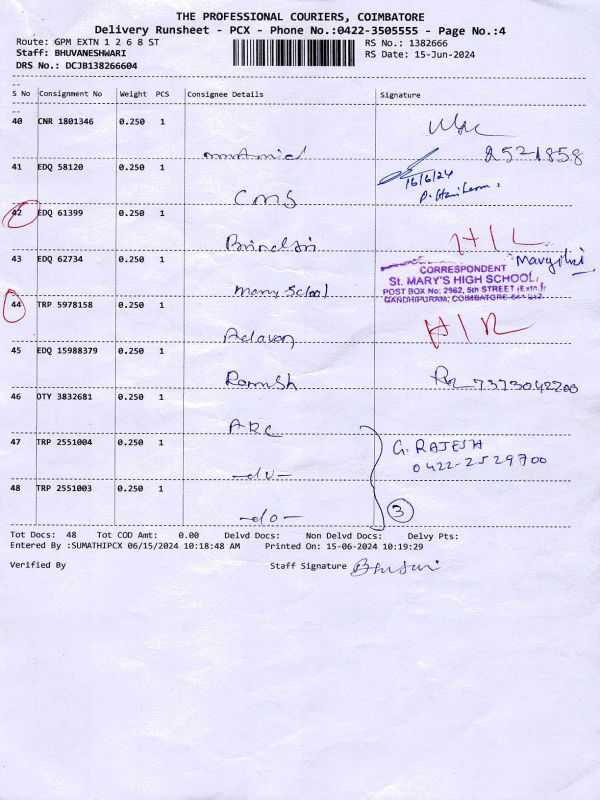 THE PROFESSIONAL COURIERS, COIMBATORE
Delivery Runsheet - PCX - Phone No.:0422-3505555 - Page No.:4
Route: GPM EXTN 1 2 6 8 ST
RS No.: 1382666
Staff: BHUVANESHWARI
RS Date: 15-Jun-2024
DRS No.: DCJB138266604
S No Consignment No Weight PCS Consignee Details Signature
40 CNR 1801346 0.250 1
2521858
41 EDQ 58120 0.250 1
16/6/24
CMS
42 EDQ 61399 0.250 1
H/L
43 EDQ 62734 0.250 1
CORRESPONDENT
St. MARY'S HIGH SCHOOL,
POST BOX No: 2962, 5th STREET (Extn.),
GANDHIPURAM, COIMBATORE-641 012.
Mary School
44 TRP 5978158 0.250 1
45 EDQ 15988379 0.250 1
Ramesh 7373042200
46 OTY 3832681 0.250 1
ARC
47 TRP 2551004 0.250 1
G. RAJESH
0422-2529700
-do-
48 TRP 2551003 0.250 1
-do- 3
Tot Docs: 48 Tot COD Amt: 0.00 Delvd Docs: Non Delvd Docs: Delvy Pts:
Entered By :SUMATHIPCX 06/15/2024 10:18:48 AM Printed On: 15-06-2024 10:19:29
Verified By Staff Signature